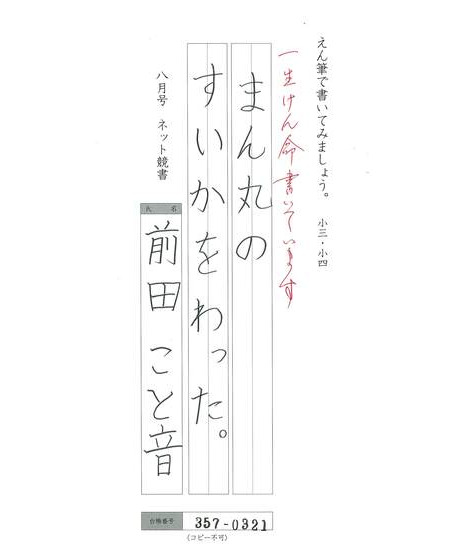 えん筆で書いてみましょう。 小三・小四
一生けん命書いています
まん丸の
すいかをわった。
八月号 ネット競書
氏名
前田 こと音
合格番号 357-0321
(コピー不可)